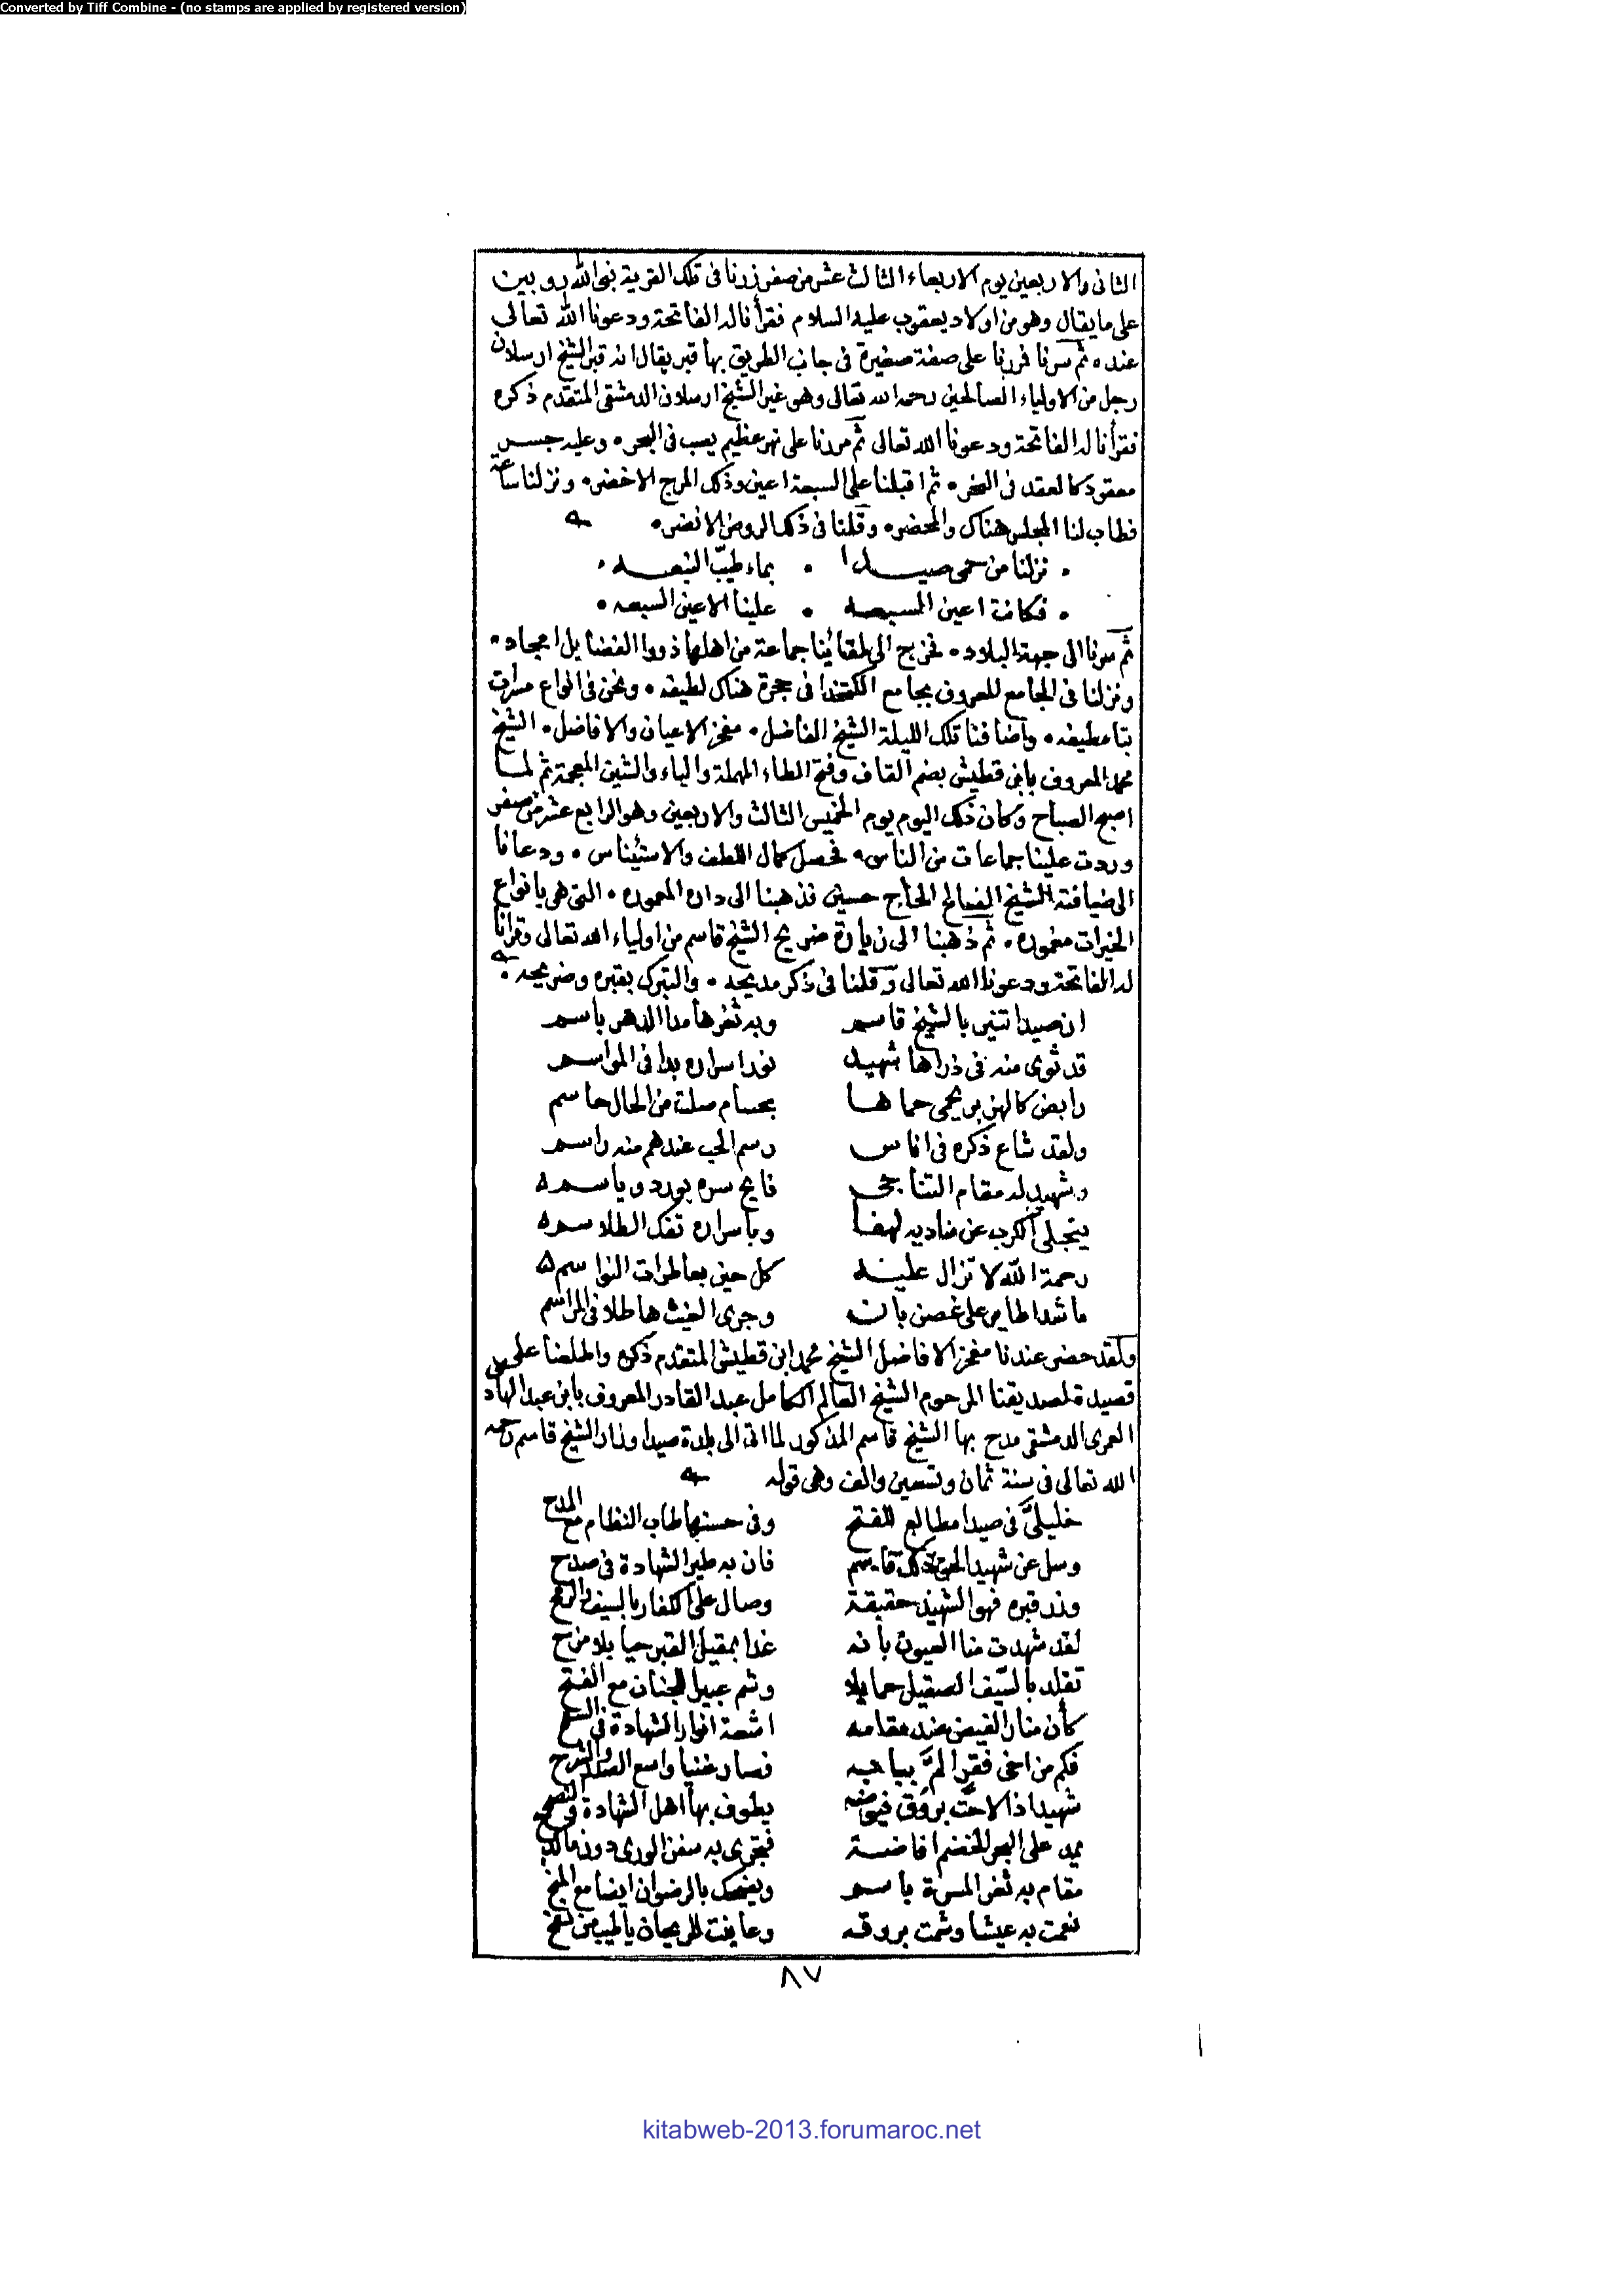 Converted by Tiff Combine - (no stamps are applied by registered version)
الثانى والاربعين يوم الاربعاء الثالث عشر من صفر زرنا فى تلك القرية بنى الله روبين
على ما يقال وهو من اولاد يعقوب عليه السلام فقرأنا له الفاتحة ودعونا الله تعالى
عنده ثم سرنا فمررنا على صفة صغيرة فى جانب الطريق بها قبر يقال انه قبر الشيخ ارسلان
رجل من الاولياء الصالحين رحمه الله تعالى وهو غير الشيخ ارسلان الدمشقى المتقدم ذكره
فقرأنا له الفاتحة ودعونا الله تعالى ثم مررنا على نهر عظيم يصب فى البحر ٠ وعليه جسر
معقود كالعقد فى النحر ٠ ثم اقبلنا على السبعة اعين وذلك المرج الاخضر ٠ ونزلنا ساعة
فطاب لنا المجلس هناك والمحضر ٠ وقلنا فى ذلك الروض الانضر ٠
٠ نزلنا من حمى صيدا ٠ بماء طيّب النبعه ٠
٠ فكانت اعين السبعه ٠ علينا الاعين السبعه ٠
ثم سرنا الى جهة البلاد ٠ فخرج الى لقائنا جماعة من اهلها ذووا الفضايل الامجاد ٠
ونزلنا فى الجامع المعروف بجامع الكتخدا فى حجرة هناك لطيفه ٠ ونحن فى انواع مسرات
بنا مطيفه ٠ واضافنا تلك الليلة الشيخ الفاضل ٠ مفخر الاعيان والافاضل ٠ الشيخ
محمد المعروف بابن قطيش بضم القاف وفتح الطاء المهملة والياء والشين المعجمة ثم لما
اصبح الصباح وكان ذلك اليوم يوم الخميس الثالث والاربعين وهو الرابع عشر من صفر
وردت علينا جماعات من الناس ٠ فحصل كمال اللطف والاستئناس ٠ ودعانا
الى ضيافته الشيخ الحاج حسين فذهبنا الى داره المعموره ٠ التى هى بانواع
الخيرات مغموره ٠ ثم ذهبنا الى زيارة ضريح الشيخ قاسم من اولياء الله تعالى وقرأنا
له الفاتحة ودعونا الله تعالى وقلنا فى ذكر مديحه ٠ والتبرك بقبره وضريحه ٠
ان صيدا تثنى بالشيخ قاسم وبه ثغرها مدا الدهر باسم
قد ثوى منه فى ذراها شهيد نور اسراره بدا فى المواسم
رابض كالهزبر يحمى حماها بحسام صلت من الحال حاسم
ولقد شاع ذكره فى اناس رسم الحب عندهم منه راسم
وشهيد له مقام التناجى فايح سره بورد وياسم
ينجلى الكرب عن مناديه لهفا وباسراره تفك الطلاسم
رحمة الله لا تزال عليه كل حين بعاطرات النواسم
ما شدا طاير على غصن بان وجرى الغيث هاطلا فى المراسم
ولقد حضر عندنا مفخر الافاضل الشيخ محمد ابن قطيش المتقدم ذكره واطلعنا على
قصيدة لصديقنا المرحوم الشيخ العالم الكامل عبد القادر المعروف بابن عبد الهاد
العمرى الدمشقى مدح بها الشيخ قاسم المذكور لما اتى الى بلدة صيدا وزار الشيخ قاسم رحمه
الله تعالى فى سنة ثمان وتسعين والف وهى قوله
خليلىَّ فى صيدا مطالع للفتح وفى حسنها طاب النظام مع المدح
وسل عن شهيد الحى ذلك قاسم فان به طير الشهادة فى صدح
وزر قبره فهو الشهيد حقيقة وصال على الكفار بالسيف والرمح
لقد شهدت منا العيون بانه غدا بمقيل القبر حيا بلا مزح
تقلد بالسّيف الصقيل حمايلا وشم عبير الجنان مع الفتح
كأن منار الفيض عند مقامه اشعة انوار الشهادة فى
فكم من اخى فقر المَّ ببابه فصار غنيا واسع الصدر والشرح
شهيد اذا لاحت بروق فيوضه يطوف بها اهل الشهادة
يمد على البحر الخضم افاضة فتجرى به سفن الورى دون
مقام به ثغر المسرة باسم ويضحك بالرضوان ايضا مع المنح
نعمت به عيشا وشمت بروقه وعاينت للريحان
٨٧
kitabweb-2013.forumaroc.net